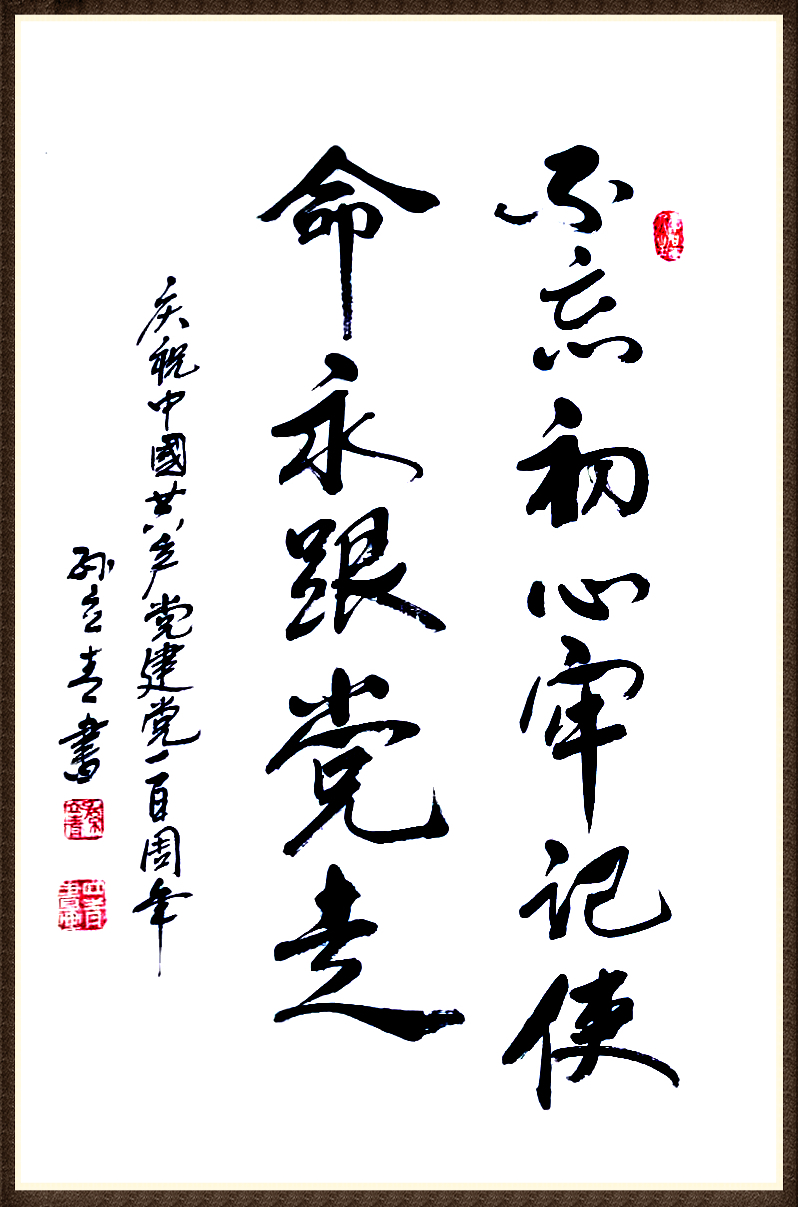 不忘初心牢记使
命永跟党走
庆祝中國共产党建党一百周年
孙立青書